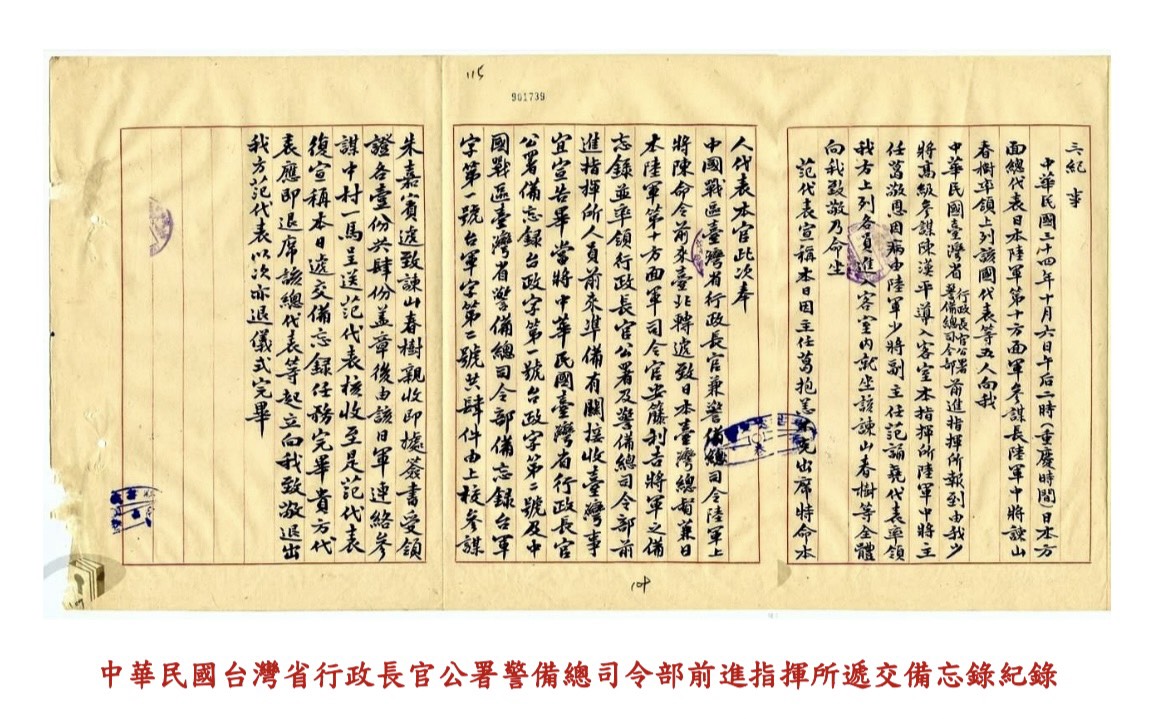 115
901739
三紀事
中華民國三十四年十月六日午后二時(重慶時間)日本方
面總代表日本陸軍第十方面軍參謀長陸軍中將諫山
春樹率領上列該國代表等五人向我
中華民國臺灣省行政長官公署警備總司令部前進指揮所報到由我少
將高級參謀陳漢平導入客室本指揮所陸軍中將主
任葛敬恩因病由陸軍少將副主任范誦堯代表率領
我方上列各員進客室內就坐該諫山春樹等全體
向我致敬乃命坐
范代表宣稱本日因主任葛抱恙不克出席特命本
人代表本官此次奉
中國戰區臺灣省行政長官兼警備總司令陸軍上
將陳命令前來臺北轉遞致日本臺灣總督兼日
本陸軍第十方面軍司令官安籐利吉將軍之備
忘錄並率領行政長官公署及警備總司令部前
進指揮所人員前來準備有關接收臺灣事
宜宣告畢當將中華民國臺灣省行政長官
公署備忘錄台政字第一號台政字第二號及中
國戰區臺灣省警備總司令部備忘錄台軍
字第一號台軍字第二號共肆件由上校參謀
朱嘉賓遞致諫山春樹親收即據簽書受領
證各壹份共肆份蓋章後由該日軍連絡參
謀中村一馬呈送范代表核收至是范代表
復宣稱本日遞交備忘錄任務完畢貴方代
表應即退席該總代表等起立向我致敬退出
我方范代表以次亦退儀式完畢
108
中華民國台灣省行政長官公署警備總司令部前進指揮所遞交備忘錄紀錄